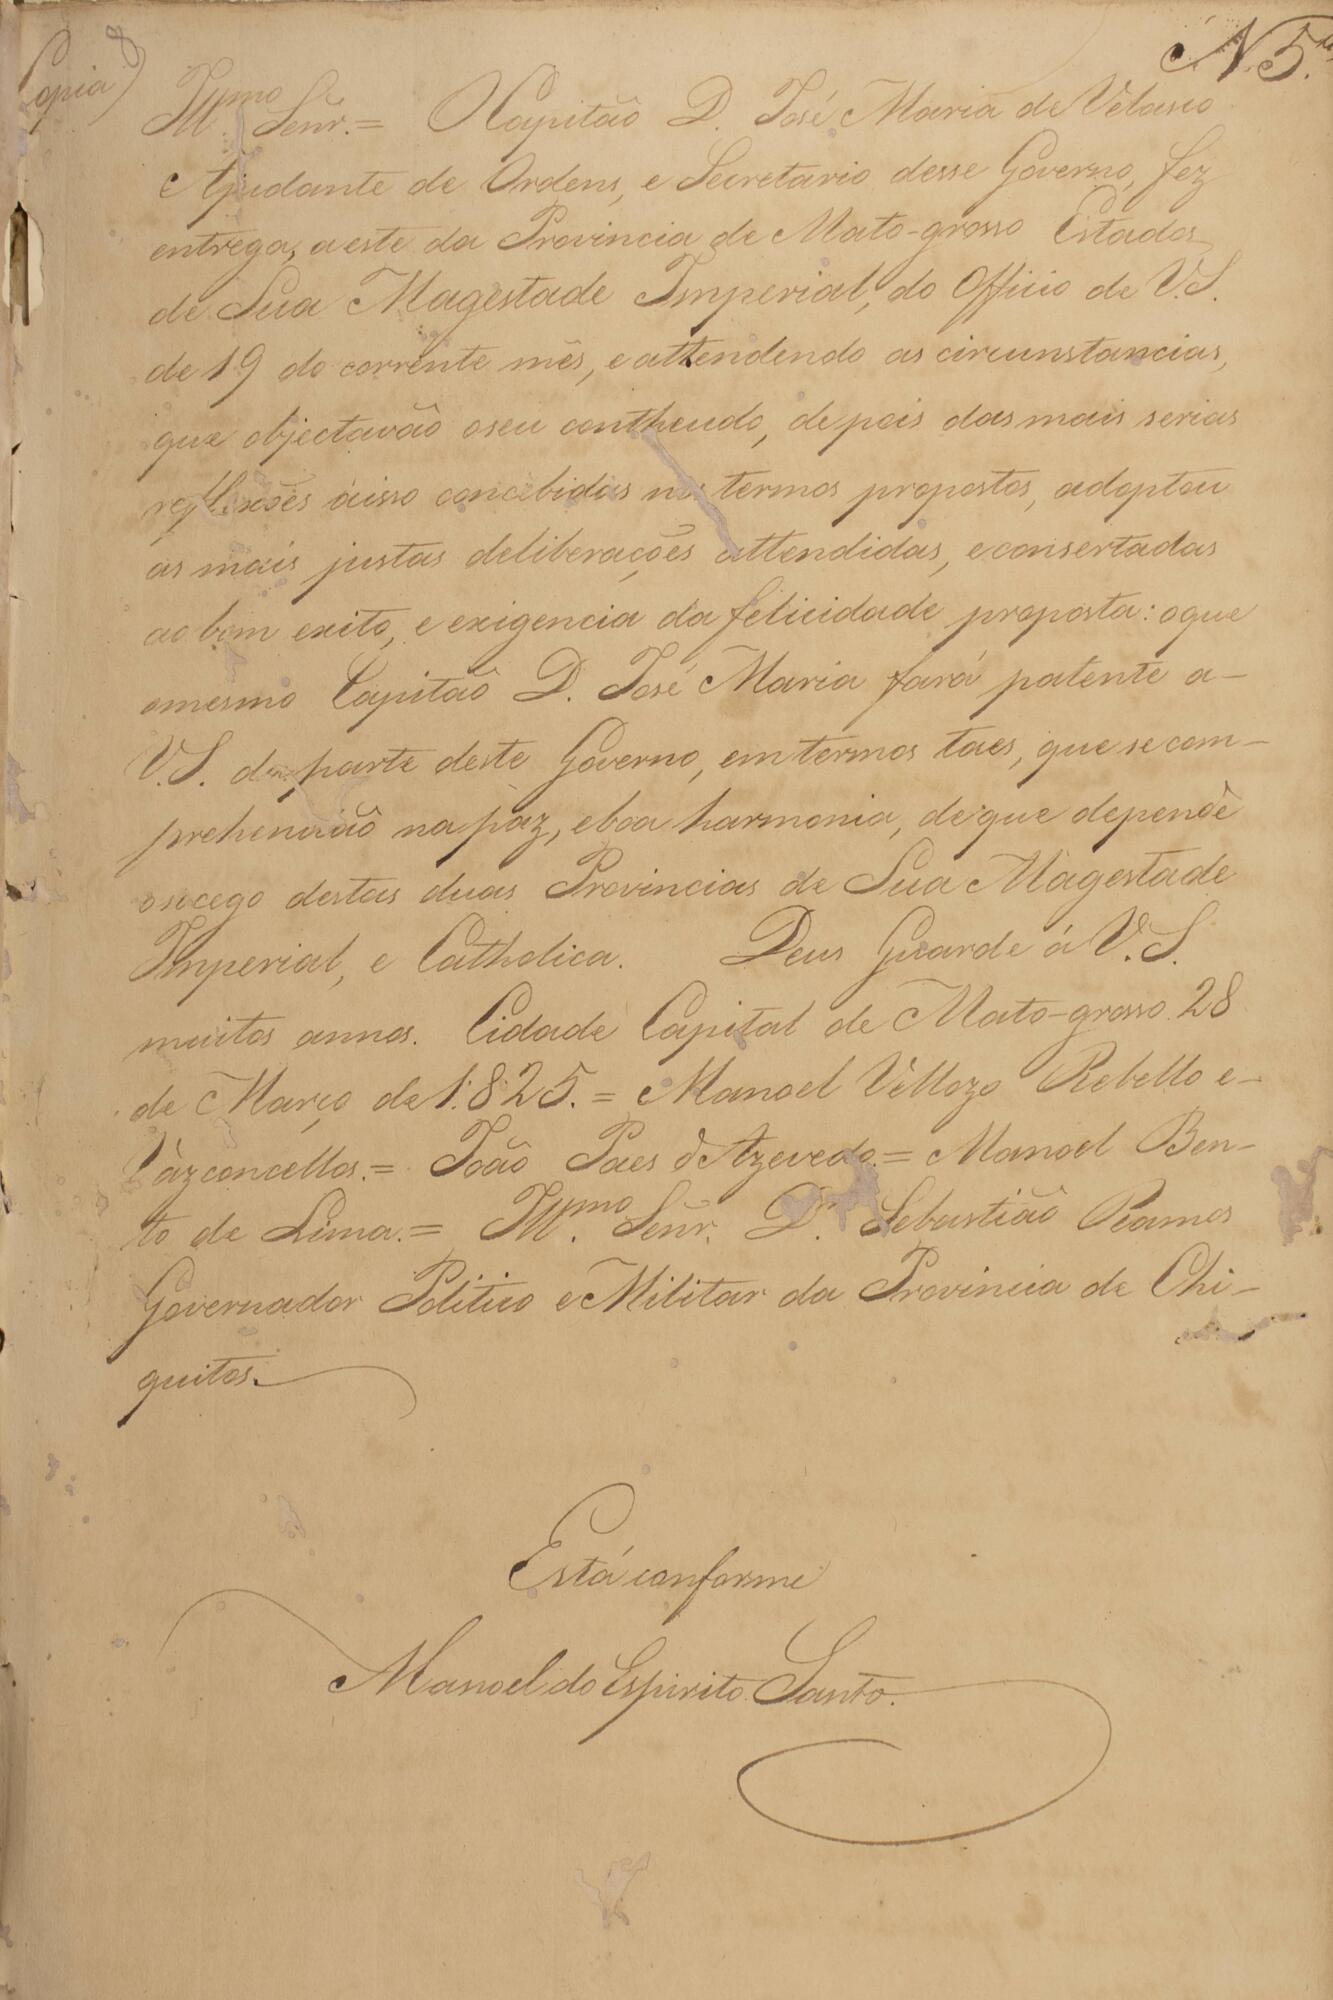 Copia)
N. 5.
Ill.mo Senr. = O Capitão D. José Maria de Velasco
Ajudante de Ordens, e Secretario desse Governo, fez
entrega, a este da Provincia de Mato-grosso Estados
de Sua Magestade Imperial, do Officio de V.S.
de 19 do corrente mês, e attendendo as circunstancias,
que objectavão o seu contheudo, depois das mais serias
reflexões àisso concebidas nos termos propostos, adoptou
as mais justas deliberações attendidas, e consertadas
ao bom exito, e exigencia da felicidade proposta: o que
o mesmo Capitão D. José Maria fará patente a-
V.S. da parte deste Governo, em termos taes, que se com-
prehencião na paz, e boa harmonia, de que depende
o socego destas duas Provincias de Sua Magestade
Imperial, e Catholica. Deus Guarde á V.S.
muitos annos. Cidade Capital de Mato-grosso 28
de Março de 1:825. = Manoel Vellozo Rebello e-
Vàzconcellos. = João Paes d'Azevedo. = Manoel Ben-
to de Lima. = Ill.mo Señr. D.r Sebastião Ramos
Governador Politico e Militar da Provincia de Chi-
quitos.
Está conforme
Manoel do Espirito Santo.